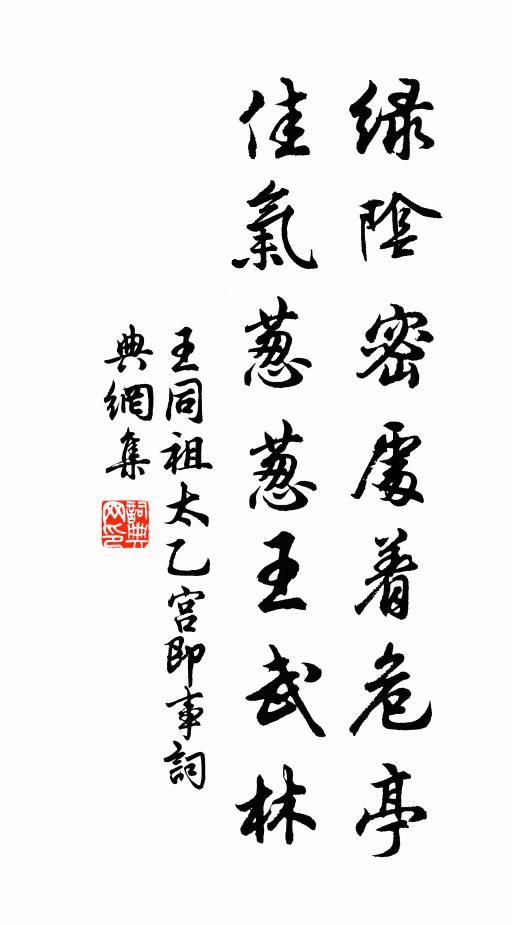 綠陰密處着危亭
佳氣葱葱王武林
王同祖太乙宮即事詞
典網集
詞典网印